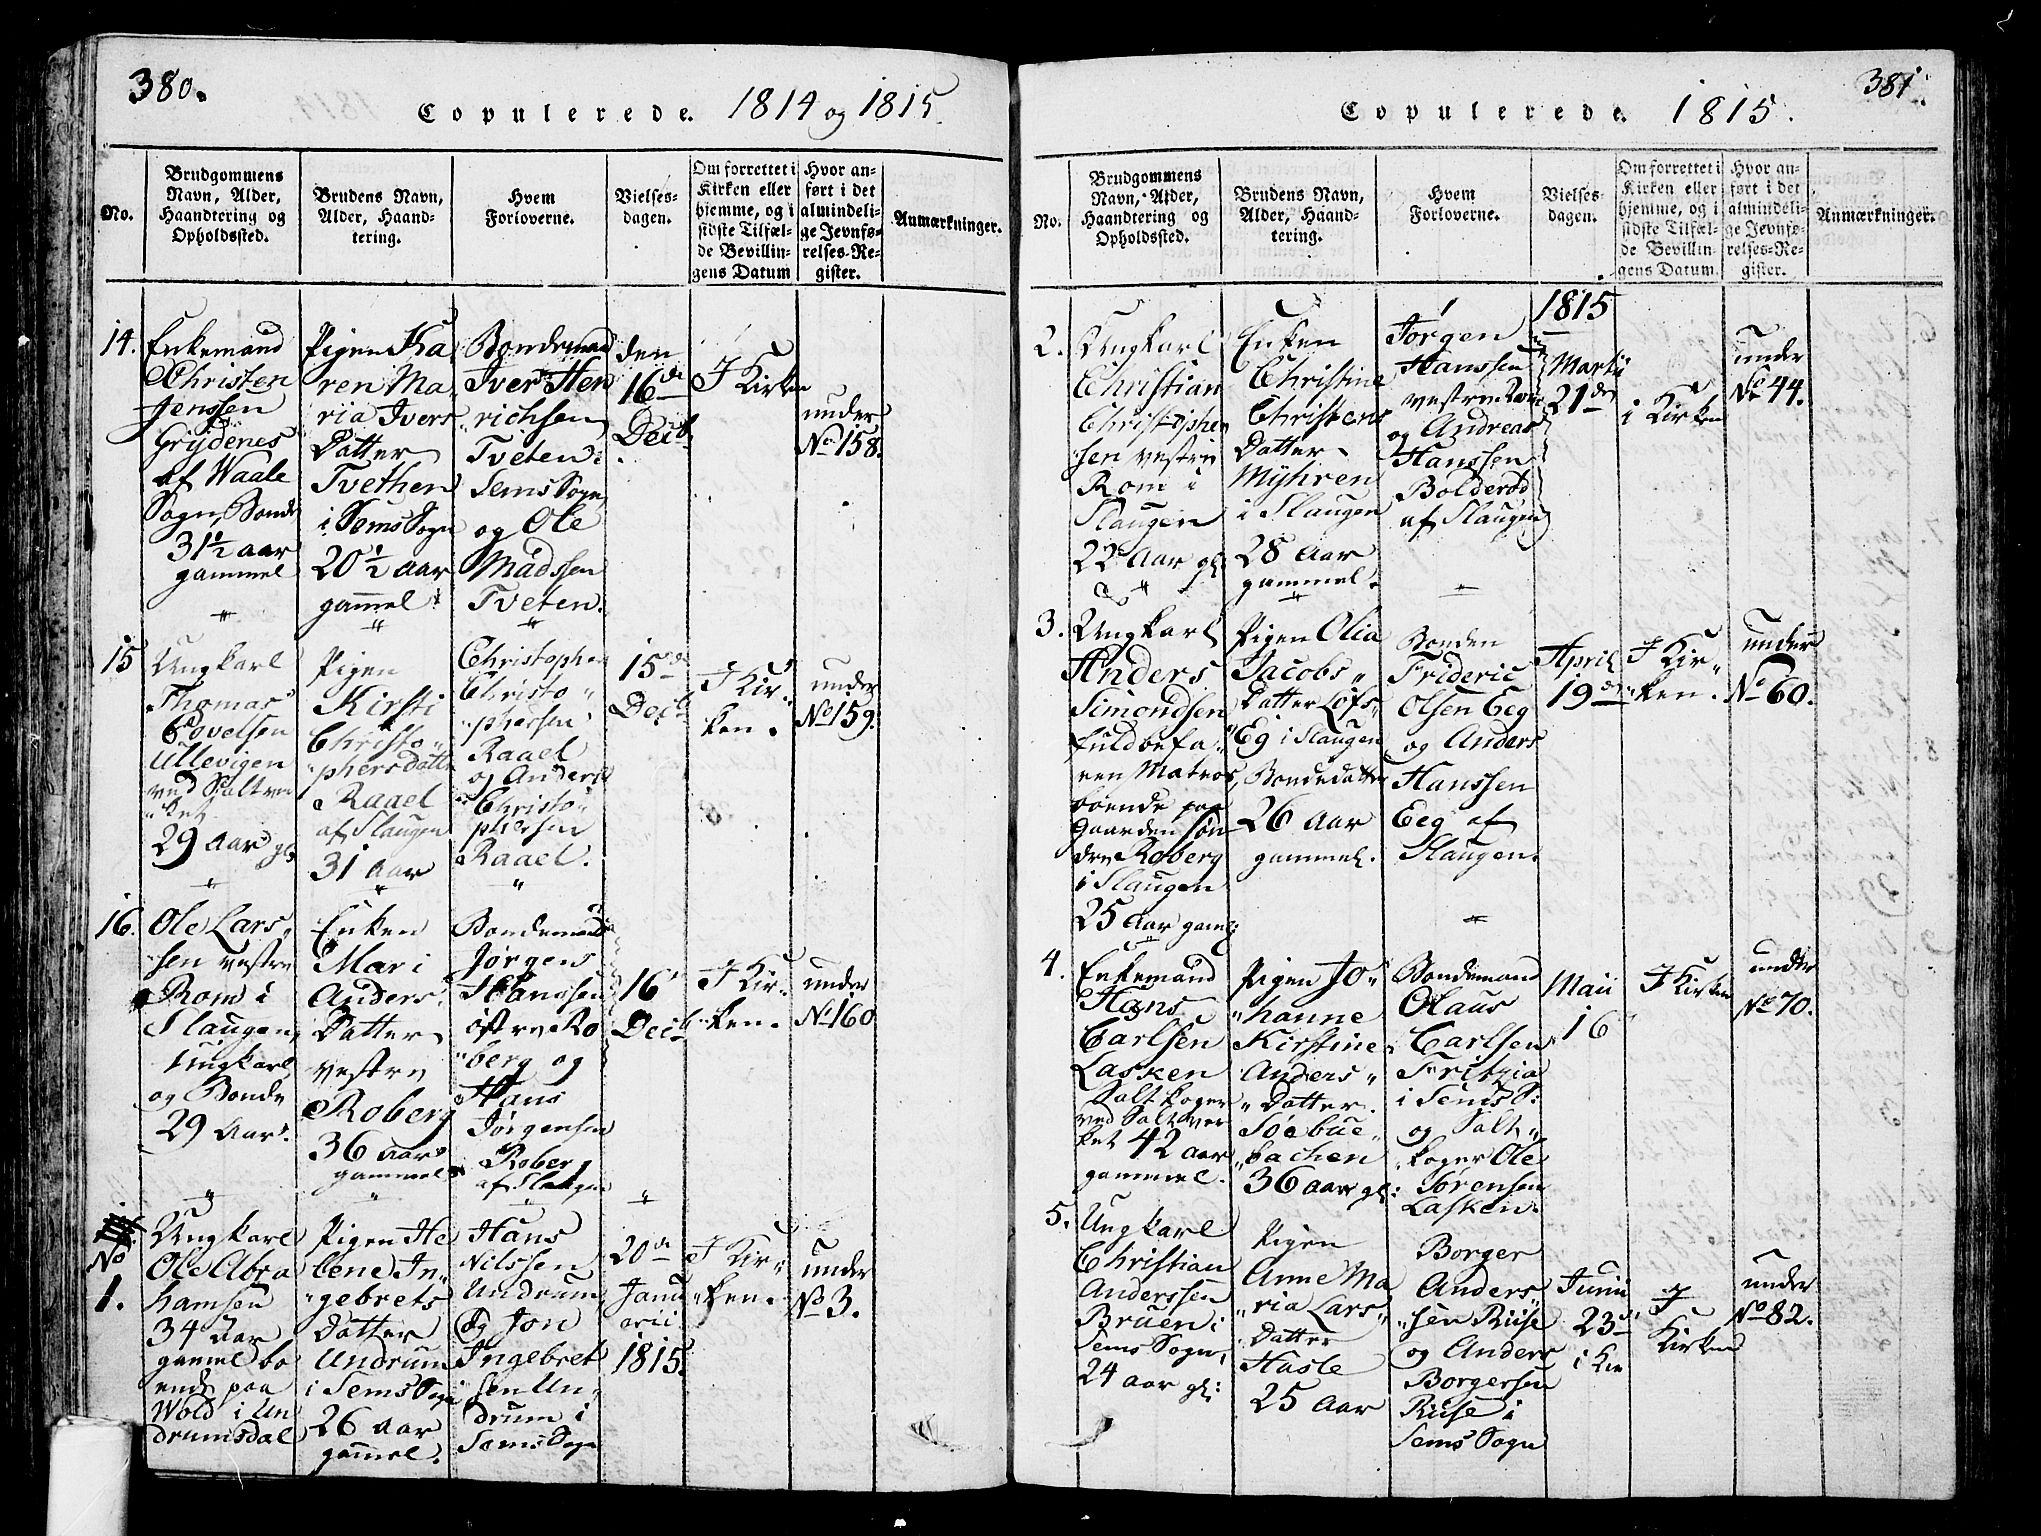 380.
Copulerede. 1814 og 1815.
No.
Brudgommens
Navn, Alder,
Haandtering og
Opholdssted.
Brudens Navn,
Alder, Haand-
tering.
Hvem
Forloverne.
Vielses-
dagen.
Om forrettet i
Kirken eller
hjemme, og i
sidste Tilfæl-
de Bevillin-
gens Datum
Hvor an-
ført i det
almindeli-
ge Jevnfø-
relses-Re-
gister.
Anmærkninger.
14.
Enkemand
Christen
Jenssen
Grydenes
af Waale
Sogn, Bonde
31 1/2 aar
gammel
Pigen Ka
ren Ma
ria Ivers
Datter
Tvethen
i Sems Sogn
20 1/2 aar
gammel
Bondemand
Iver Hen
richsen
Tveten
Sems Sogn
og Ole
Madssen
Tveten.
den
16de
Decb.
I Kirken
under
No 158.
15
Ungkarl
Thomas
Povelsen
Ullevigen
ved Saltver
ket
29 Aar gl.
Pigen
Kirsti
Christo
phersdatter
Raael
af Slaugen
31 Aar
Christopher
Christo
phersen
Raael
og Anders
Christo
phersen
Raael.
15de
Decb.
I Kir
ken.
under
No 159.
16.
Ole Lars
sen vestre
Rom i
Slaugen,
Ungkarl
og Bonde
29 Aar.
Enken
Mari
Anders
Datter
vestre
Roberg
36 Aar
gammel
Bondemand
Jørgens
Hanssen
østre Ro
berg og
Hans
Jørgensen
Roberg
af Slaugen
16
Decb.
I Kir
ken.
under
No 160
No
1.
Ungkarl
Ole Abra
hamsen
34 Aar
gammel bo
ende paa
Wold i Un
drumsdal
Pigen He
lene In
gebrets
Datter
Undrum
i Sems Sogn
26 Aar
gammel.
Hans
Nilssen
Undrum
og Jon
Ingebret
sen Un
drum i
Sems Sogn
20de
Janu
arii
1815.
I Kir
ken.
under
No 3.
381.
Copulerede. 1815.
No.
Brudgommens
Navn, Alder,
Haandtering og
Opholdssted.
Brudens Navn,
Alder, Haand-
tering.
Hvem
Forloverne.
Vielses-
dagen.
Om forrettet i
Kirken eller
hjemme, og i
sidste Tilfæl-
de Bevillin-
gens Datum.
Hvor an-
ført i det
almindeli-
ge Jevnfø-
relses-Re-
gister.
Anmærkninger.
2.
Ungkarl
Christian
Christophe
sen vestre
Rom i
Slaugen
22 Aar gl.
Enken
Christine
Christens
Datter
Myhren
i Slaugen
28 Aar
gammel.
Jørgen
Hanssen
vestre Rom
og Andreas
Hanssen
Bolderød
af Slaugen
1815
Martii
21de
i Kirken
under
No 44.
3.
Ungkarl
Anders
Simondsen
fuldbefa
ren Matros,
boende paa
Gaarden søn
dre Roberg
i Slaugen
25 Aar gaml.
Pigen Olia
Jacobs
Datter Løfs
Eg i Slaugen
Bondedatter
26 Aar
gammel.
Bonden
Frideric
Olsen Eeg
og Anders
Hanssen
Eeg af
Slaugen.
April
19de
I Kir
ken.
under
No 60.
4.
Enkemand
Hans
Carlsen
Lasken
Saltkoger
ved Saltver
ket 42 aar
gammel.
Pigen Jo
hanne
Kirstine
Anders
Datter
Søebue
bachen
36 Aar gl:
Bondemand
Olaus
Carlsen
Tritzia
i Sems S:
og Salt
koger Ole
Sørensen
Lasken.
Maii
16
I Kirken
under
No 70.
5.
Ungkarl
Christian
Anderssen
Bruen i
Sems Sogn,
24 aar gl:
Pigen
Anne Ma
ria Lars
Datter
Hasle
25 Aar
Borger
Anders
sen Riise
og Anders
Borgersen
Riise i
Sems Sogn
Junii
23de
i Kir
I
Kirken
under
No 82.